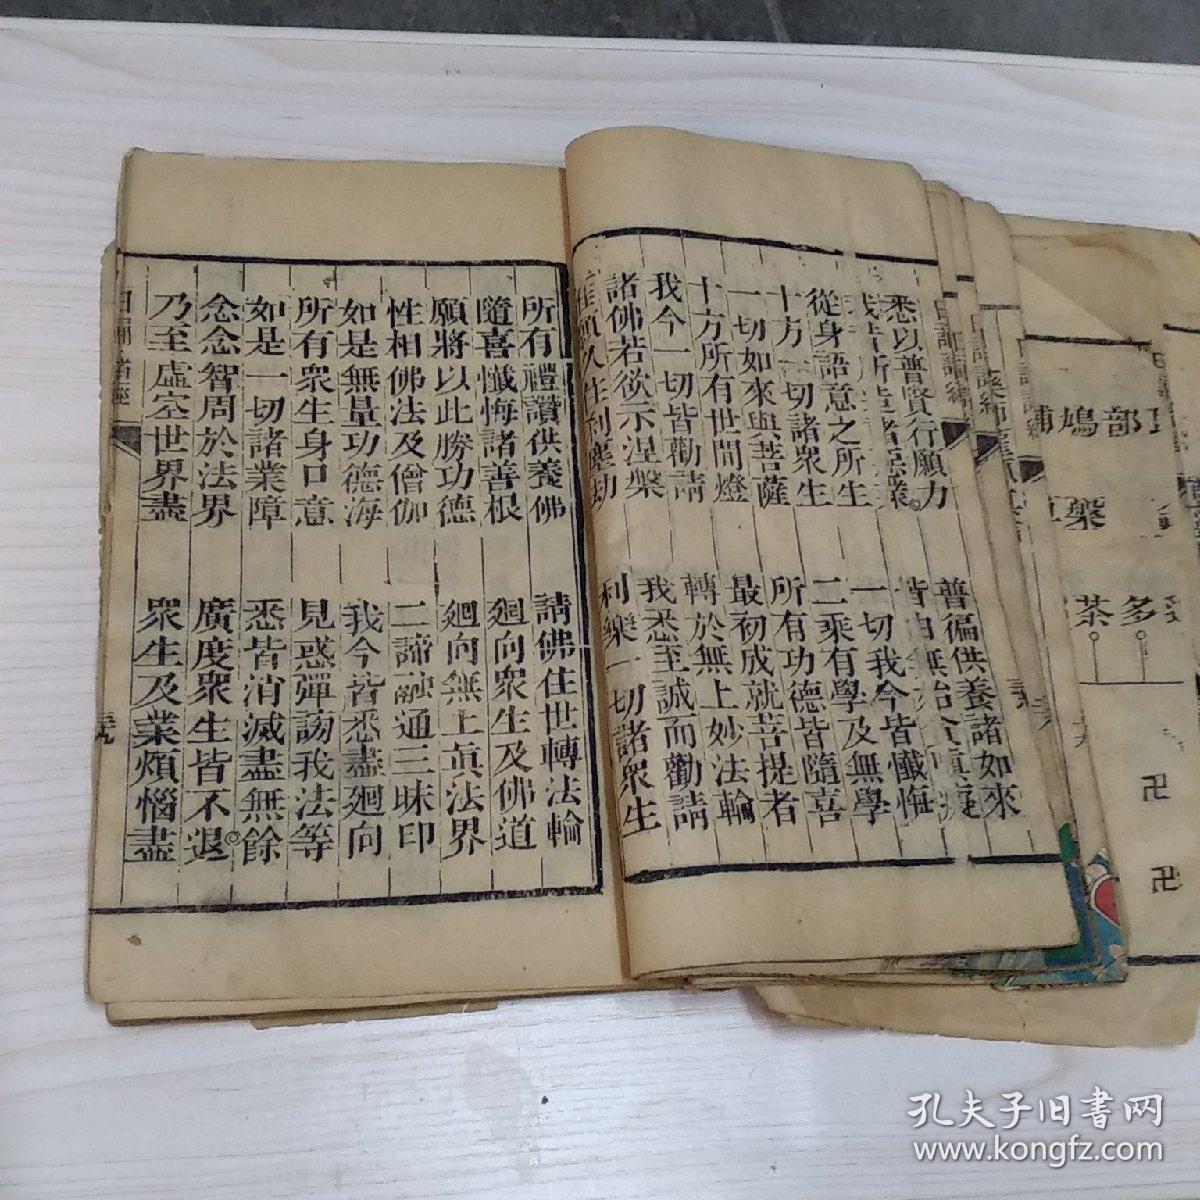 悉以普賢行願力　普徧供養諸如來
我昔所造諸惡業　皆由無始貪瞋癡
從身語意之所生　一切我今皆懺悔
十方一切諸衆生　二乘有學及無學
一切如來與菩薩　所有功德皆隨喜
十方所有世間燈　最初成就菩提者
我今一切皆勸請　轉於無上妙法輪
諸佛若欲示涅槃　我悉至誠而勸請
惟願久住刹塵劫　利樂一切諸衆生
所有禮讚供養佛　請佛住世轉法輪
隨喜懺悔諸善根　廻向衆生及佛道
願將以此勝功德　廻向無上眞法界
性相佛法及僧伽　二諦融通三昧印
如是無量功德海　我今皆悉盡廻向
所有衆生身口意　見惑彈謗我法等
如是一切諸業障　悉皆消滅盡無餘
念念智周於法界　廣度衆生皆不退
乃至虛空世界盡　衆生及業煩惱盡
日誦諸經
孔夫子旧书网
www.kongfz.com